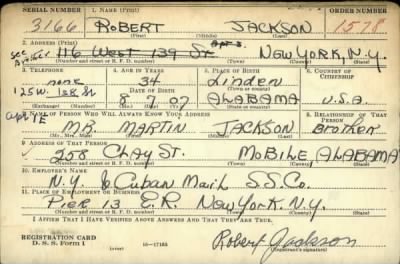 SERIAL NUMBER 1. NAME (Print) ORDER NUMBER
3166 ROBERT JACKSON 1578
2. ADDRESS (Print) Apt 3.
See Brother 116 West 139 St NEW YORK, N.Y.
(Number and street or R. F. D. number) (Town) (County) (State)
3. TELEPHONE 4. AGE IN YEARS 5. PLACE OF BIRTH 6. COUNTRY OF CITIZENSHIP
none 34 Linden
DATE OF BIRTH (Town or county)
125 W. St 8 7 07 ALABAMA U.S.A.
(Exchange) (Number) (Mo.) (Day) (Yr.) (State or country)
apt 12 7. NAME OF PERSON WHO WILL ALWAYS KNOW YOUR ADDRESS 8. RELATIONSHIP OF THAT PERSON
MR. MARTIN JACKSON Brother
(Mr., Mrs., Miss) (First) (Middle) (Last)
9. ADDRESS OF THAT PERSON
258 Chay St. MOBILE ALABAMA
(Number and street or R. F. D. number) (Town) (County) (State)
10. EMPLOYER'S NAME
N.Y. & Cuban Mail S.S.Co.
11. PLACE OF EMPLOYMENT OR BUSINESS
Pier 13 E.R. New York. N.Y.
(Number and street or R. F. D. number) (Town) (County) (State)
I AFFIRM THAT I HAVE VERIFIED ABOVE ANSWERS AND THAT THEY ARE TRUE.
REGISTRATION CARD
D. S. S. Form 1 (over) 16—17105
Robert Jackson
(Registrant's signature)